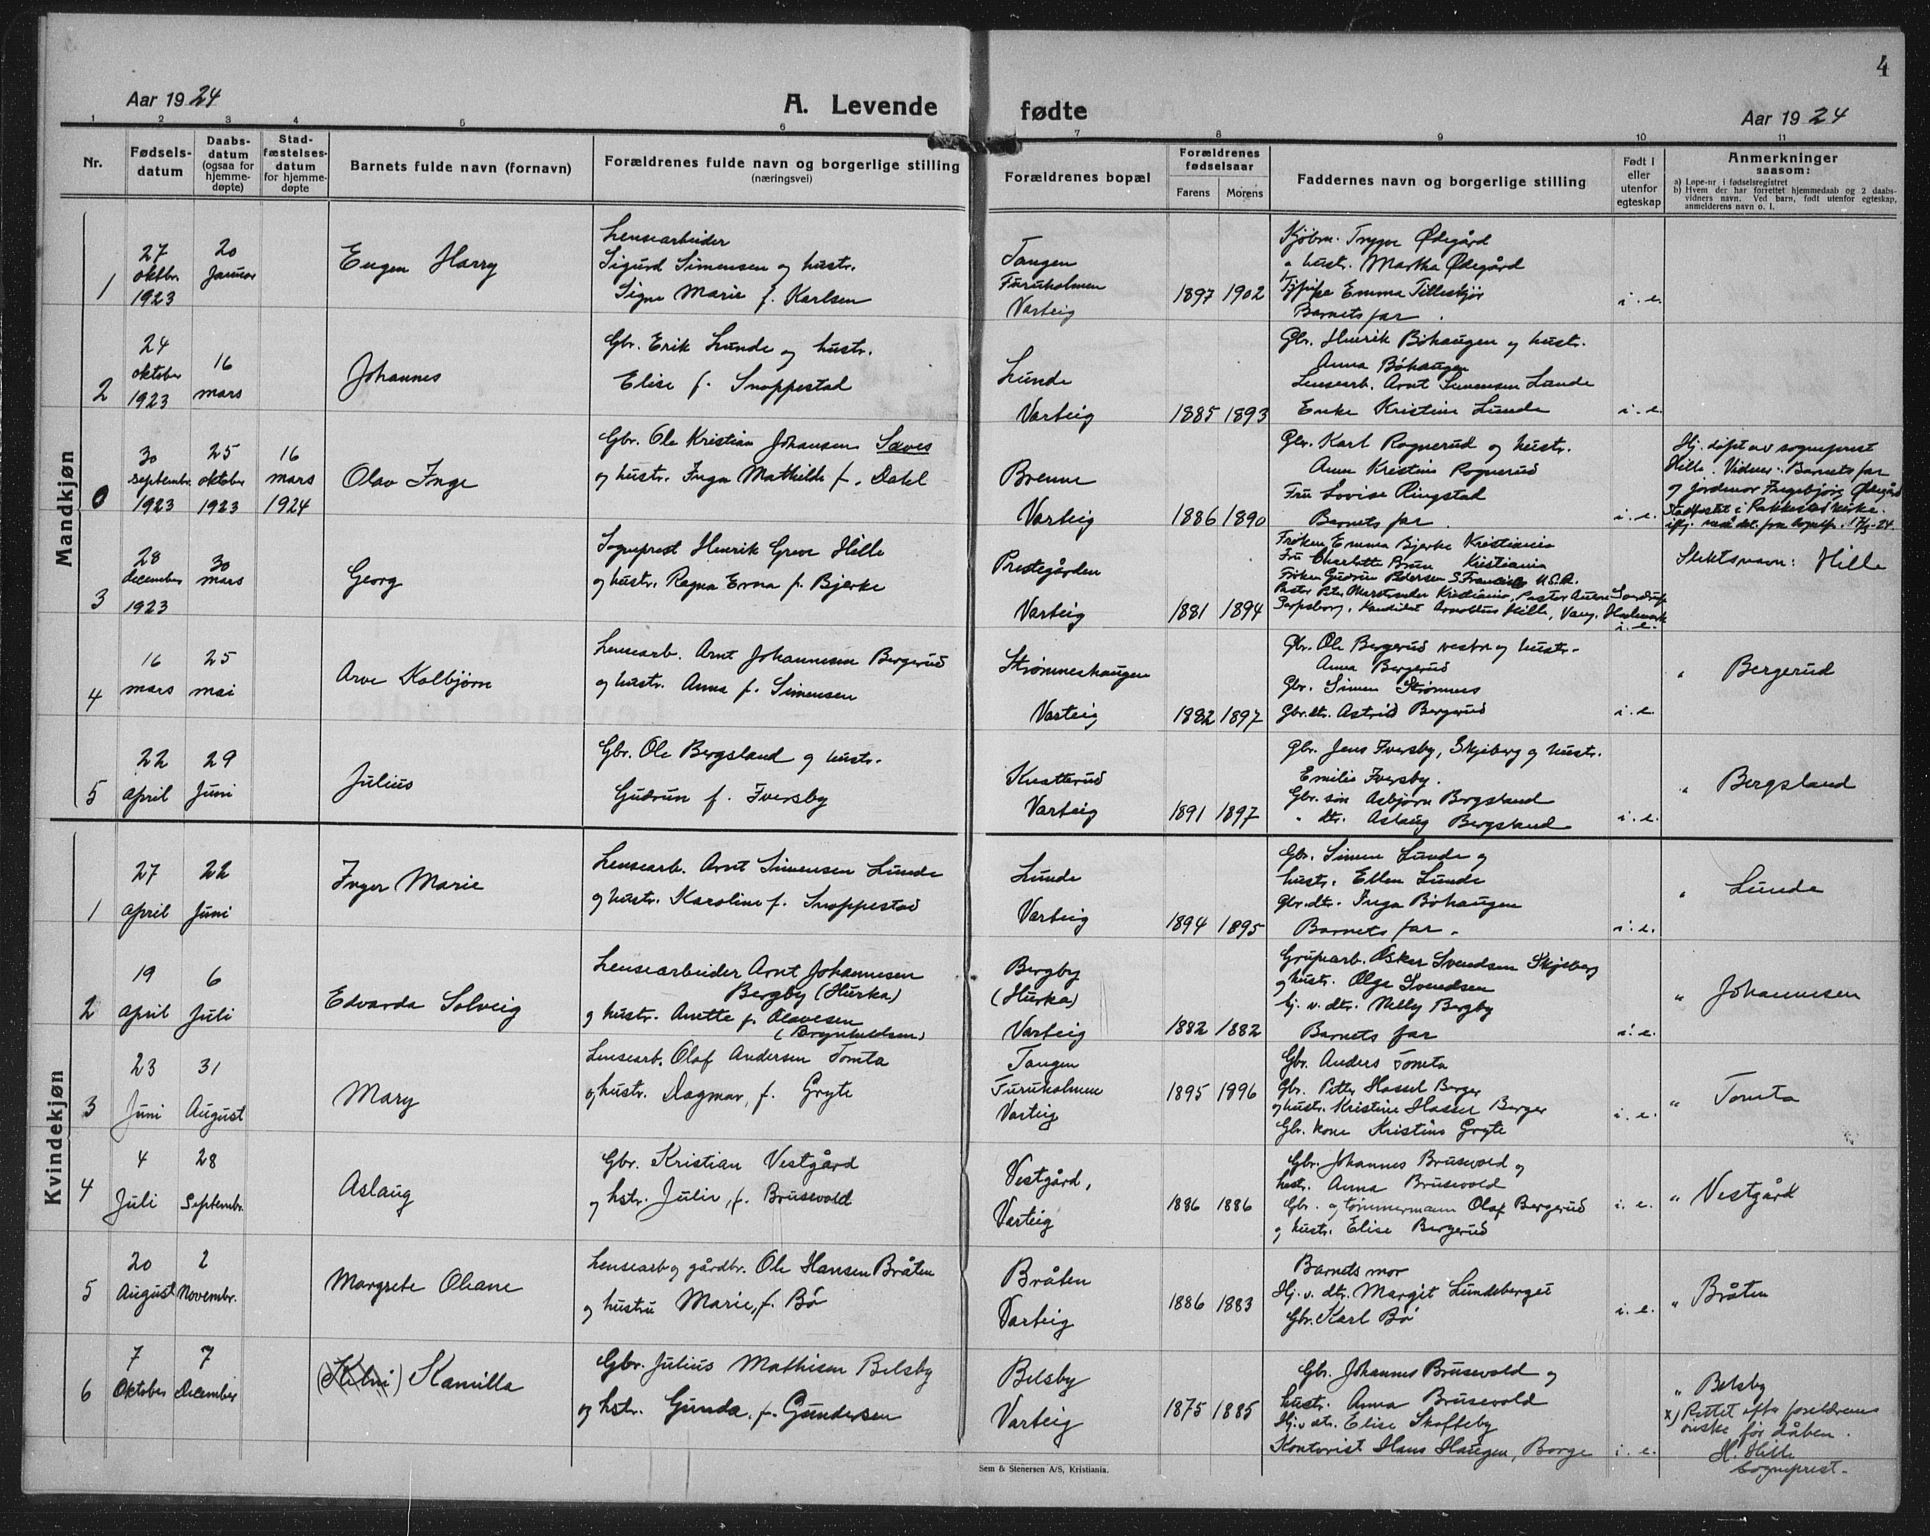 4
Aar 1924
A. Levende fødte
Aar 1924
1 2 3 4 5 6 7 8 9 10 11
Nr.
Fødsels-
datum
Daabs-
datum
(ogsaa for
hjemme-
døpte)
Stad-
fæstelses-
datum
for hjemme-
døpte
Barnets fulde navn (fornavn)
Forældrenes fulde navn og borgerlige stilling
(næringsvei)
Forældrenes bopæl
Forældrenes
fødselsaar
Farens Morens
Faddernes navn og borgerlige stilling
Født i
eller
utenfor
egteskap
Anmerkninger
saasom:
a) Løpe-nr i fødselsregistret
b) Hvem der har forrettet hjemmedaab og 2 daabs-
vidners navn. Ved barn, født utenfor egteskap,
anmelderens navn o. l.
Mandkjøn
1
27
oktbr.
1923
20
Januar
Eugen Harry
Lensearbeider
Sigurd Simensen og hustr.
Signe Marie f. Karlsen
Tangen
Furuholmen
Varteig
1897 1902
Kjøbm. Trygve Ødegård
" hustr. Martha Ødegård
Emma Tilleskjør
Barnets far.
i. e.
2
24
oktober
1923
16
mars
Johannes
Gbr. Erik Lunde og hustr.
Elise f. Snoppestad
Lunde
Varteig
1885 1893
Gbr. Henrik Böhaugen og hustr.
Anna Böhaugen
Lensearb. Arnt Simensen Lunde
Enke Kristine Lunde
i. e.
0
30
septembr.
1923
25
oktober
1923
16
mars
1924
Olav Inge
Gbr. Ole Kristian Johansen Saves
og hustr. Inga Mathilde f. Datel
Brenne
Varteig
1886 1890
Gbr. Karl Rognerud og hustr.
Anne Kristine Rognerud
Fru Lovise Ringstad
Barnets far.
i. e.
Hj. døpt av sogneprest
Hille. Vidner: Barnets far
og jordmor Ingebjørg Ødegård
Stadfestet i Rakkestad kirke.
iflg. meddel. fra sognepr. 17/3-24.
3
28
december
1923
30
mars
Georg
Sogneprest Henrik Greve Hille
og hustr. Ragna Erna f. Bjerke
Prestegården
Varteig
1881 1894
Frøken Emma Bjerke Kristiania
Fru Charlotte Brun Kristiania
Frøken Gudrun Pedersen S. Francisco U.S.A.
Pastor Marstrander Kristiania, Pastor
Sarpsborg, Kandidat Arnoldus Hille, Vang, Hedemark
i. e.
Slektsnavn: Hille
4
16
mars
25
mai
Arve Kolbjørn
Lensearb. Arnt Johannesen Bergerud
og hustr. Anna f. Simensen
Strømneshaugen
Varteig
1882 1897
Gbr. Ole Bergerud vestre og hustr.
Anna Bergerud
Gbr. Simen Strømnes
Gbr.dtr. Astrid Bergerud
i. e.
" Bergerud
5
22
april
29
Juni
Julius
Gbr. Ole Bergsland og hustr.
Gudrun f. Iversby
Knatterud
Varteig
1891 1897
Gbr. Jens Iversby, Skjeberg og hustr.
Emilie Iversby.
Gbr. søn Asbjørn Bergsland
" dtr. Aslaug Bergsland
i. e.
" Bergsland
Kvindekjøn
1
27
april
22
Juni
Inger Marie
Lensearb. Arnt Simensen Lunde
og hustr. Karoline f. Snoppestad
Lunde
Varteig
1894 1895
Gbr. Simen Lunde og
hustr. Ellen Lunde
Gbr.dtr. Inga Böhaugen
Barnets far.
i. e.
" Lunde
2
19
april
6
Juli
Edvarda Solveig
Lensearbeider Arnt Johannesen
Bergby (Hurka)
og hustr. Anette f. Olavesen
(Brynhildsen)
Bergby
(Hurka)
Varteig
1882 1882
Grubearb. Oskar Svendsen Skjeberg
og hustr. Olga Svendsen
hj. v. dtr. Nelly Bergby
Barnets far
i. e.
" Johannesen
3
23
Juni
31
August
Mary
Lensearb. Olaf Andersen Tomta
og hustr. Dagmar, f. Gryte
Tangen
Furuholmen
Varteig
1895 1996
Gbr. Anders Tomta
Gbr. Petter Hassel Berger
og hustr. Kristine Hassel Berger
Gbr. kone Kristine Gryte
i. e.
" Tomta
4
4
Juli
28
Septembr.
Aslaug
Gbr. Kristian Vestgård
og hstr. Julie, f. Brusevold
Vestgård,
Varteig
1886 1886
Gbr. Johannes Brusevold og
hstr. Anna Brusevold
Gbr. og tømmermann Olaf Bergerud
og hustr. Elise Bergerud
i. e.
" Vestgård
5
20
August
2
Novembr.
Margrete Oleane
Lensearb og gårdbr. Ole Hansen Bråten
og hustru Marie, f. Bø
Bråten
Varteig
1886 1883
Barnets mor
Hj. v. dtr. Margit Lundeberget
Gbr. Karl Bø
i. e.
" Bråten
6
7
Oktober
7
December
Kamilla
Gbr. Julius Mathisen Belsby
og hstr. Gunda, f. Gundersen
Belsby
Varteig
1875 1885
Gbr. Johannes Brusevold og
hustr. Anna Brusevold
Hj. v. dtr. Elise Skofteby
Kontorist Hans Haugen, Borge
i. e.
" Belsby
x) Rettet efter foreldrenes
ønske før dåben.
H. Hille
sogneprest.
Sem & Stenersen A/S, Kristiania.